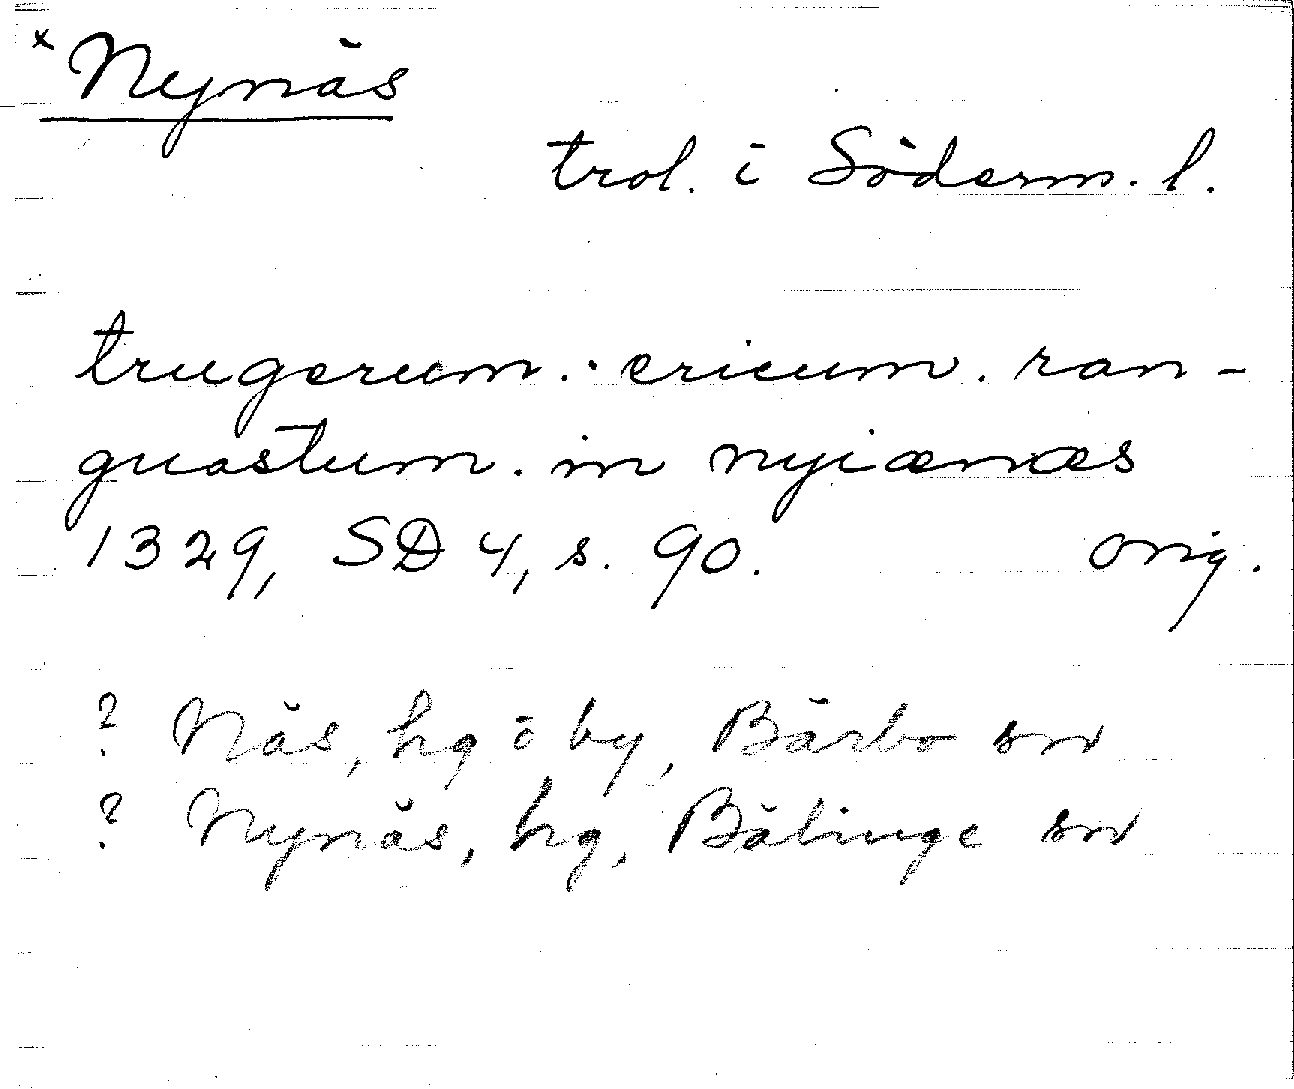 x Nynäs
trol. i Söderm. l.
trugerum . ericum . ran-
guastum . in nyiænæs
1329, SD 4, s. 90. orig.
? Näs, hg o by, Bärbo sn
? Nynäs, hg, Bälinge sn